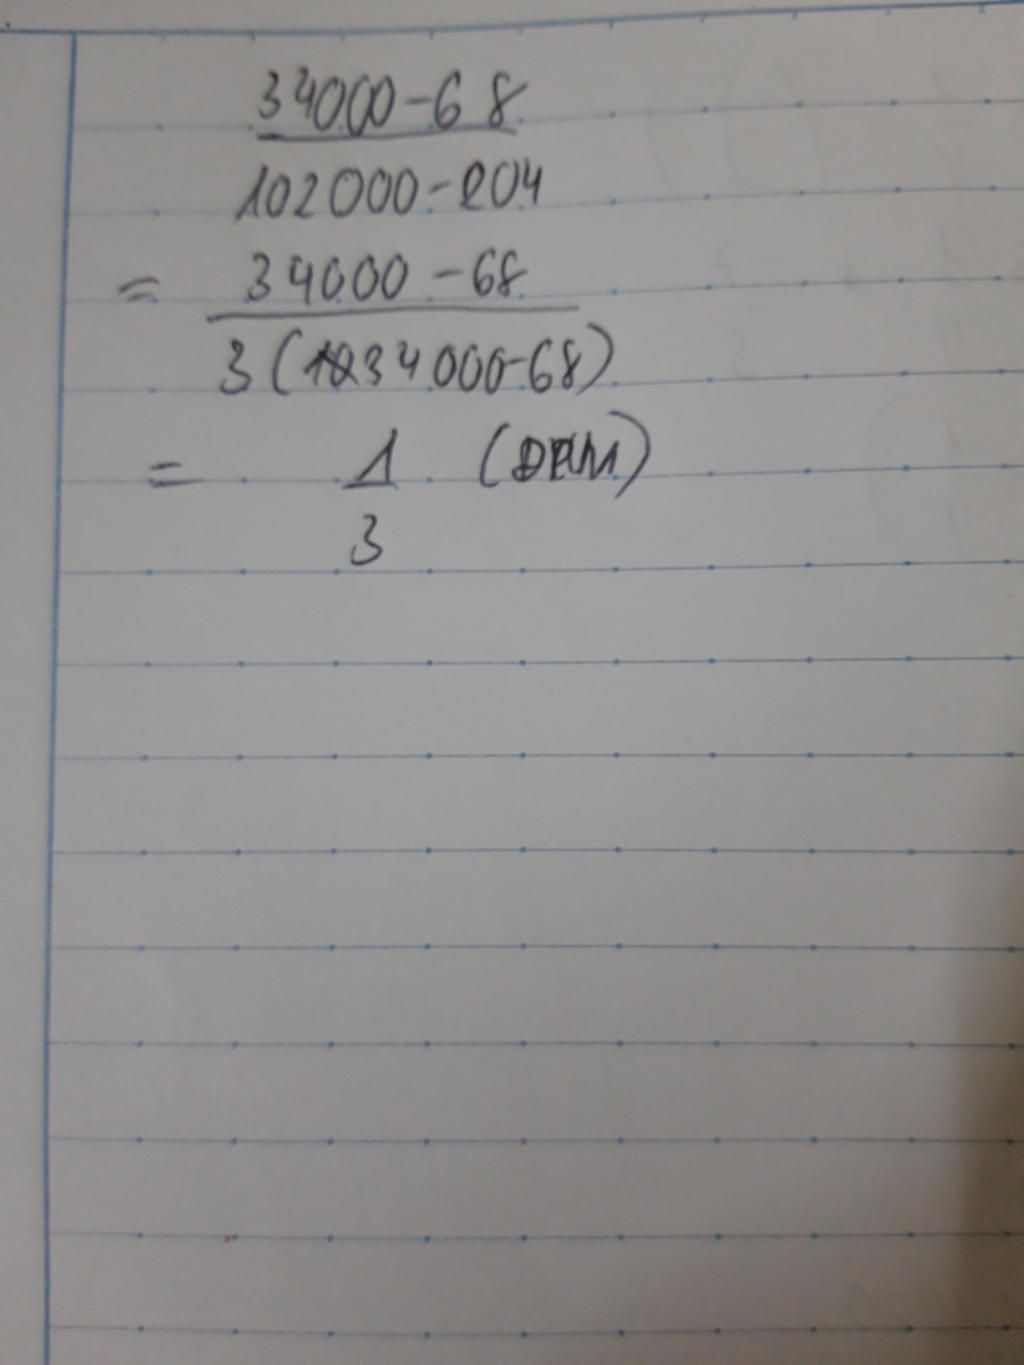 34000-68
102000-204
= 34000-68
3(34000-68)
= 1 (ĐPCM)
3